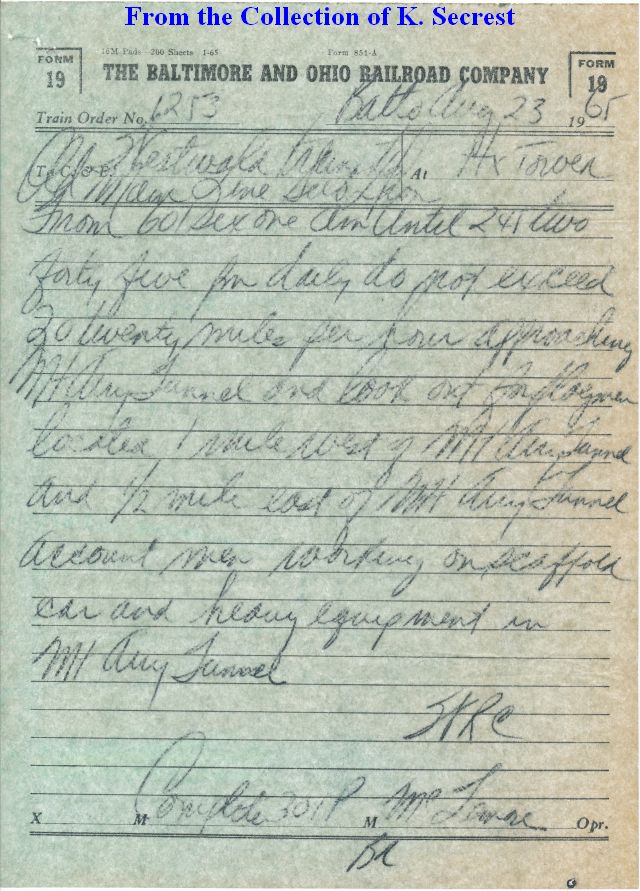 From the Collection of K. Secrest
16M Pads—200 Sheets 1-65 Form 851-A
FORM 19 THE BALTIMORE AND OHIO RAILROAD COMPANY FORM 19
Train Order No. 1253 Balto Aug 23 1965
To C. & E. Westward At Hx Tower
Old Main Line
From 601 six one Am until 245 two
forty five Pm daily do not exceed
20 twenty miles per hour approaching
Mt Airy Tunnel and look out for flagmen
located 1 mile west of Mt Airy Tunnel
and 1/2 mile east of Mt Airy Tunnel
account men working on scaffold
car and heavy equipment in
Mt Airy Tunnel
X M Complete 301 P M Opr.